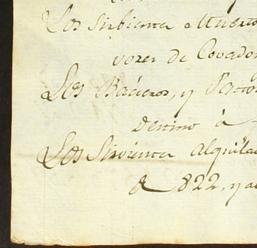 Los Sirbienta
vozes de Covador
Los Baceros, y Pasto
Destino à
Los Sirvienta alquila
a 822, y a